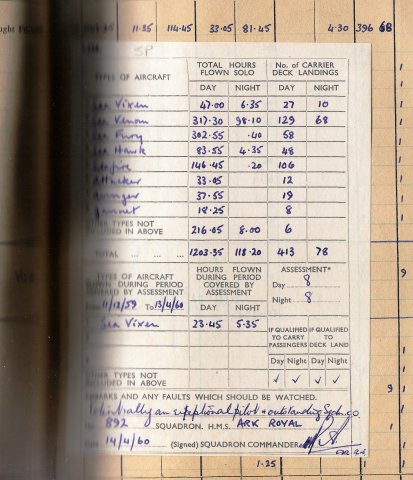 11.35 114.45 33.05 81.45 4.30 396 68
JP
TOTAL HOURS FLOWN SOLO No. of CARRIER DECK LANDINGS
TYPES OF AIRCRAFT DAY NIGHT DAY NIGHT
Sea Vixen 47.00 6.35 27 10
Sea Venom 317.30 98.10 129 68
Sea Fury 302.55 .40 58
Sea Hawk 83.55 4.35 48
Seafire 146.45 .20 106
Attacker 33.05 12
37.55 19
Gannet 18.25 8
OTHER TYPES NOT
INCLUDED IN ABOVE 216.05 8.00 6
TOTAL ... ... ... 1203.35 118.20 413 78
TYPES OF AIRCRAFT HOURS FLOWN ASSESSMENT*
FLOWN DURING PERIOD DURING PERIOD Day 8
COVERED BY ASSESSMENT COVERED BY ASSESSMENT Night 8
From 11/12/59 To 13/4/60 DAY NIGHT
Sea Vixen 23.45 5.35
IF QUALIFIED TO CARRY PASSENGERS IF QUALIFIED TO DECK LAND
Day Night Day Night
OTHER TYPES NOT
INCLUDED IN ABOVE ✓ ✓ ✓ ✓
REMARKS AND ANY FAULTS WHICH SHOULD BE WATCHED.
Potentially an exceptional pilot & outstanding Sqdn. CO
892 SQUADRON. H.M.S. ARK ROYAL
Date 14/4/60 (Signed) SQUADRON COMMANDER
9
9
1.25